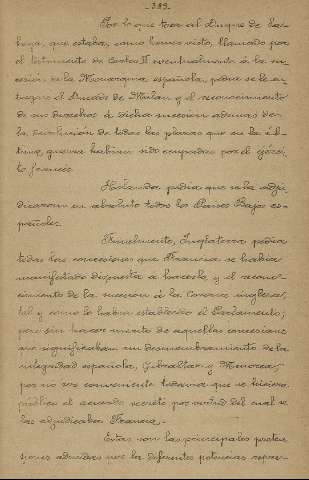 - 389 -
Por lo que toca al Duque de Sa-
boya, que estaba, como hemos visto, llamado por
el testamento de Carlos II eventualmente á la su-
cesión de la Monarquía española, pedía se le en-
tregara el Ducado de Milán y el reconocimiento
de sus derechos á dicha sucesión además de
la devolución de todas las plazas que en la úl-
tima guerra habían sido ocupadas por el ejérci-
to francés.
Holanda pedía que se la adju-
dicaran en absoluto todos los Países Bajos es-
pañoles.
Finalmente, Inglaterra pedía
todas las concesiones que Francia se había
manifestado dispuesta á hacerla, y el recono-
cimiento de la sucesión á la Corona inglesa,
tal y como lo había establecido el Parlamento;
pero sin hacer mérito de aquellas concesiones
que significaban un desmembramiento de la
integridad española, Gibraltar y Menorca,
por no ser conveniente todavía que se hiciera
público el acuerdo secreto por virtud del cual se
las adjudicaba Francia.
Estas son las principales preten-
siones aducidas por las diferentes potencias repre-